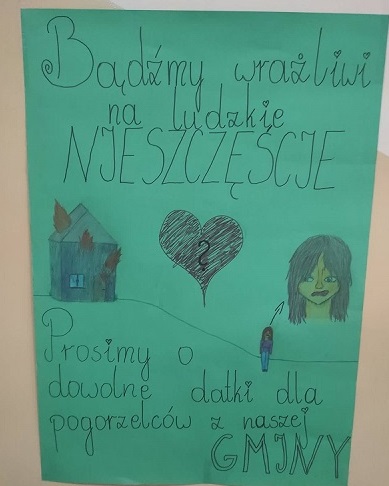 Bądźmy wrażliwi
na ludzkie
NIESZCZĘŚCIE
?
Prosimy o
dowolne datki dla
pogorzelców z naszej
GMINY